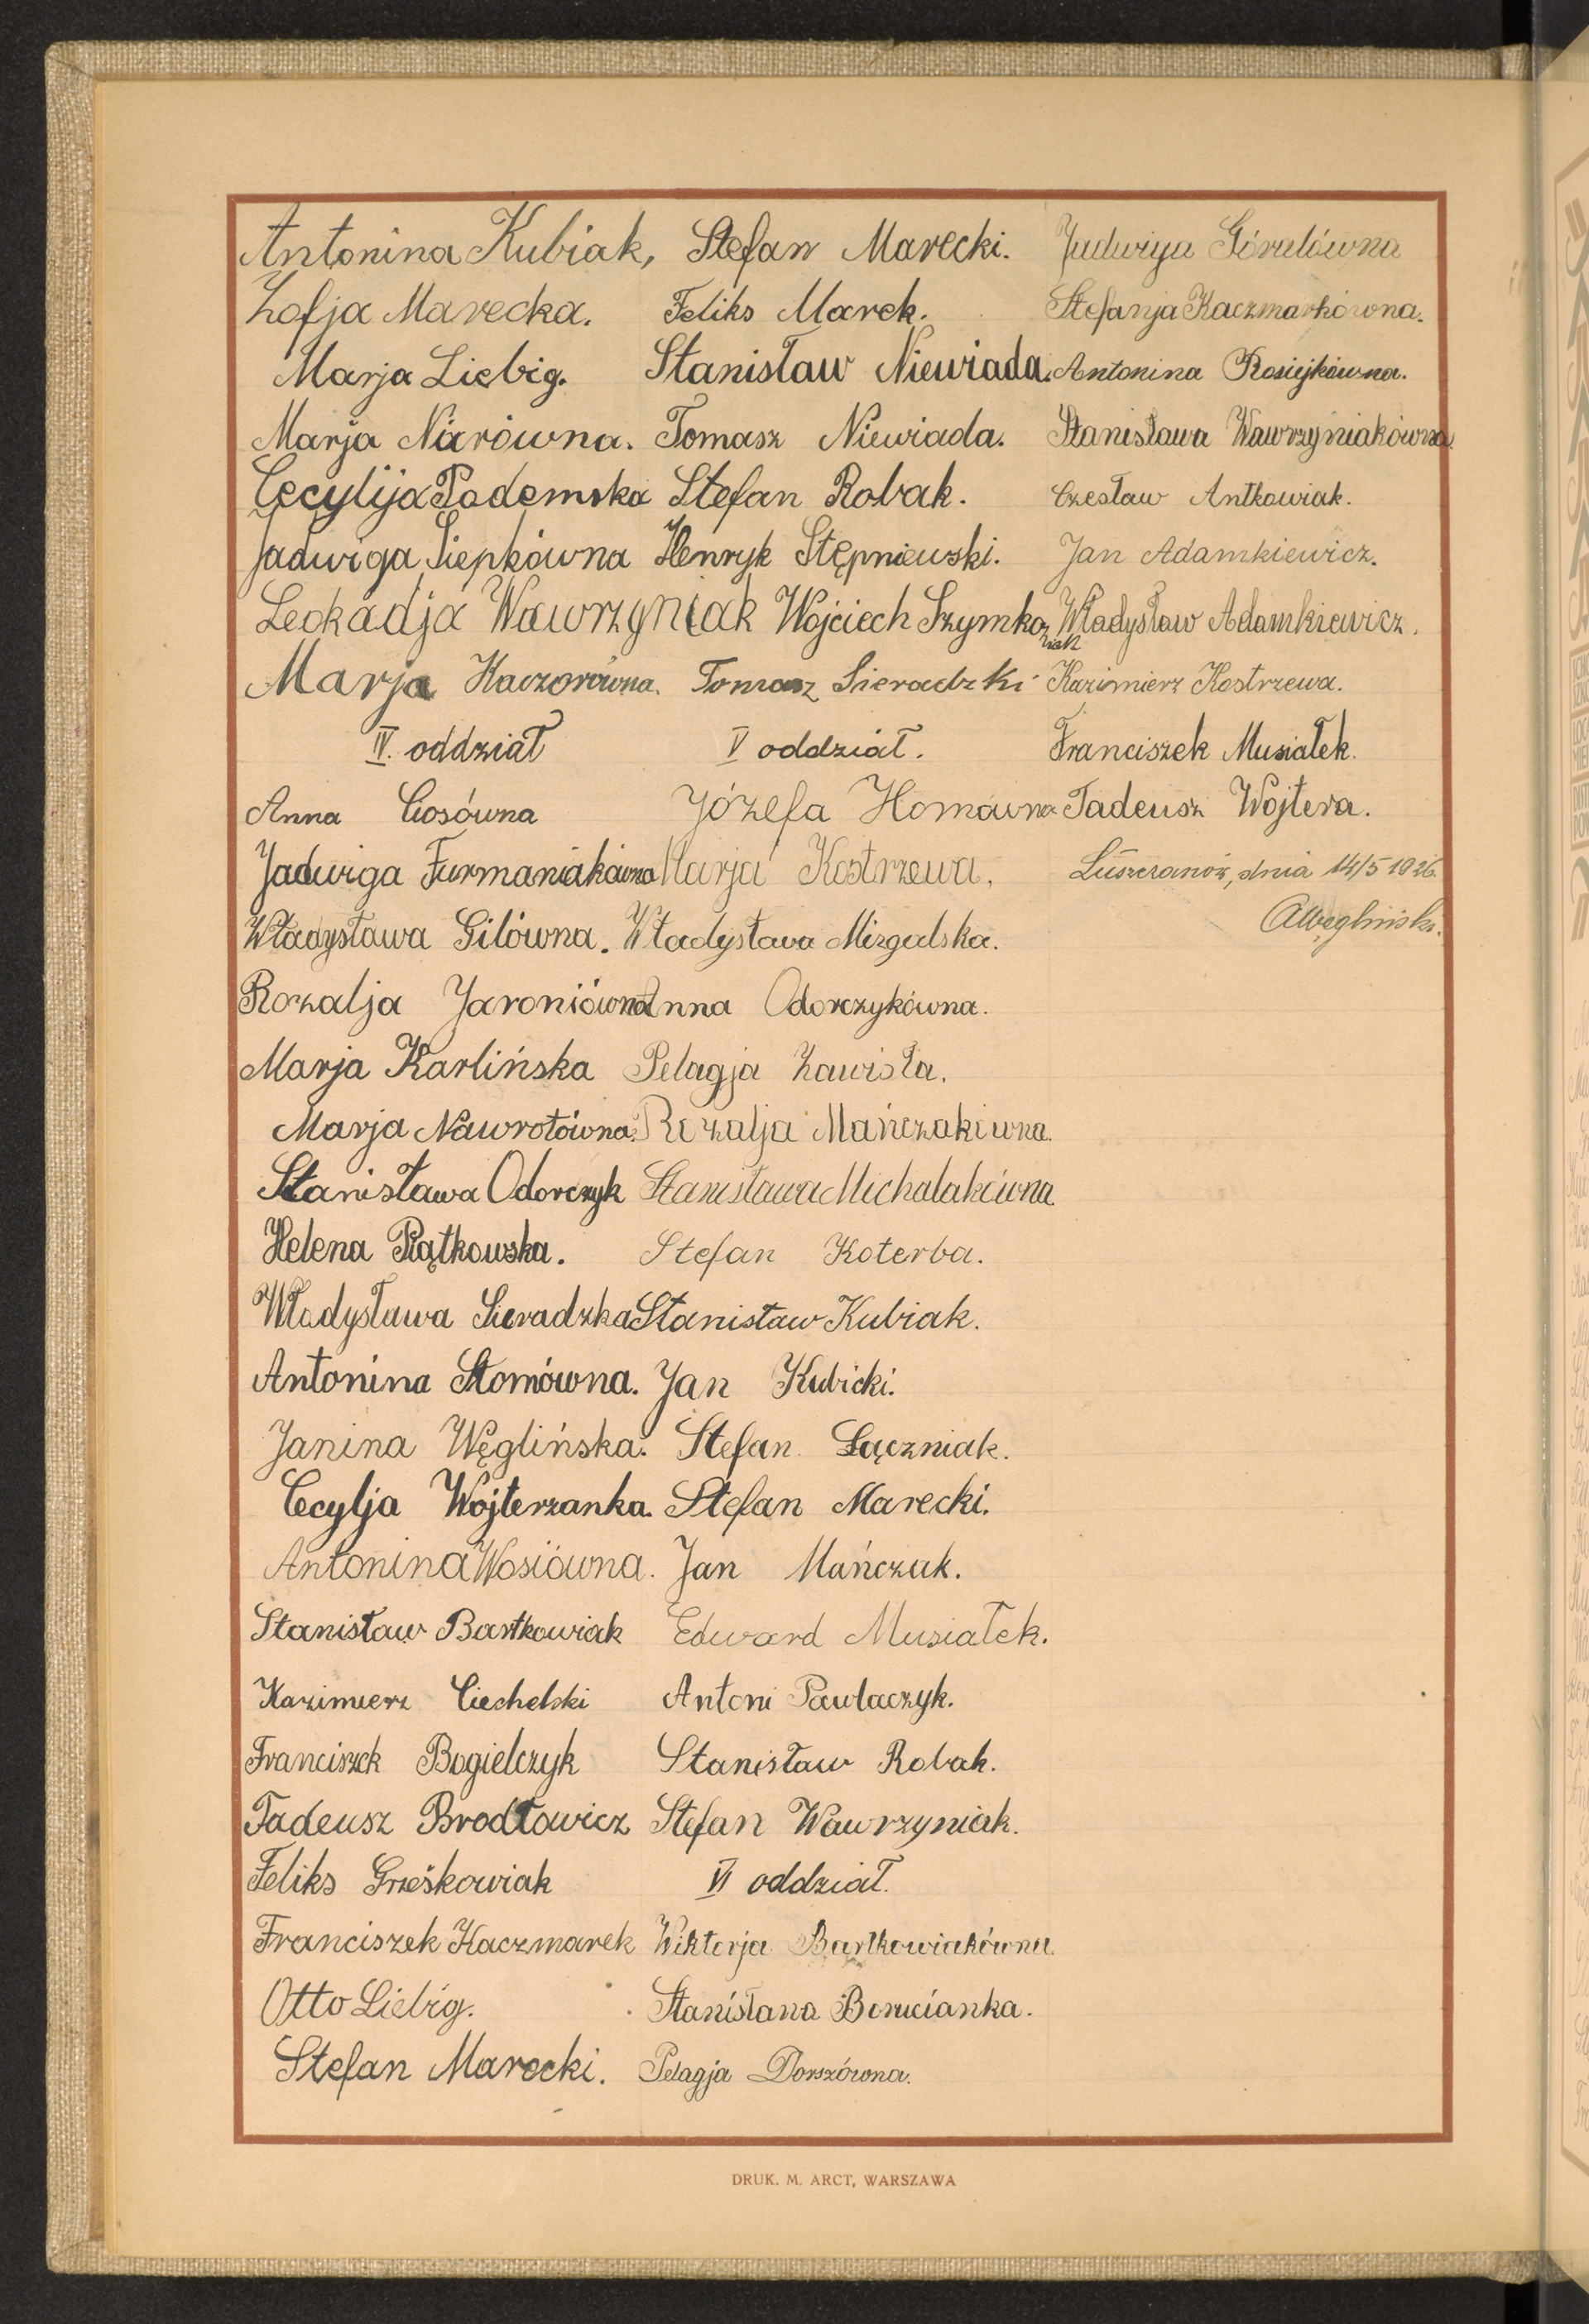 Antonina Kubiak,
Zofja Marecka.
Marja Liebig.
Marja Niarówna.
Cecylija Pademska
Jadwiga Siepkówna
Leokadja Wawrzyniak
Marja Kaczorówna.
IV. oddział
Anna Cosówna
Jadwiga Furmaniakówna
Władysława Gilówna.
Rozalja Jaroniówna
Marja Karlińska
Marja Nawrotówna.
Stanisława Odorczyk
Helena Piątkowska.
Władysława Sieradzka
Antonina Słomówna.
Janina Węglińska.
Cecylja Wojterzanka.
Antonina Wosiówna.
Stanisław Bartkowiak
Kazimierz Ciechelski
Franciszek Bogielczyk
Tadeusz Brodłowicz
Feliks Grześkowiak
Franciszek Kaczmarek
Otto Liebig.
Stefan Marecki.
Stefan Marecki.
Feliks Marek.
Stanisław Niewiada.
Tomasz Niewiada.
Stefan Robak.
Henryk Stępniewski.
Wojciech Szymkoziak
Tomasz Sieradzki
V oddział.
Józefa Homówna
Marja Kostrzewa.
Władysława Mizgalska.
Anna Odorczykówna.
Pelagja Zawisła.
Rozalja Mańczakówna.
Stanisława Michalakówna
Stefan Koterba.
Stanisław Kubiak.
Jan Kubicki.
Stefan Łączniak.
Stefan Marecki.
Jan Mańczak.
Edward Musiałek.
Antoni Pawlaczyk.
Stanisław Robak.
Stefan Wawrzyniak.
VI oddział.
Wiktorja Bartkowiakówna.
Stanisława
Pelagja Dorszówna.
Jadwiga Góralówna
Stefanja Kaczmarkówna.
Antonina Rosiejkówna.
Stanisława Wawrzyniakówna
Czesław Antkowiak.
Jan Adamkiewicz.
Władysław Adamkiewicz.
Kazimierz Kostrzewa.
Franciszek Musiałek.
Tadeusz Wojtera.
Luszczanów, dnia 14/5 1926.
AWęgliński.
DRUK. M. ARCT, WARSZAWA